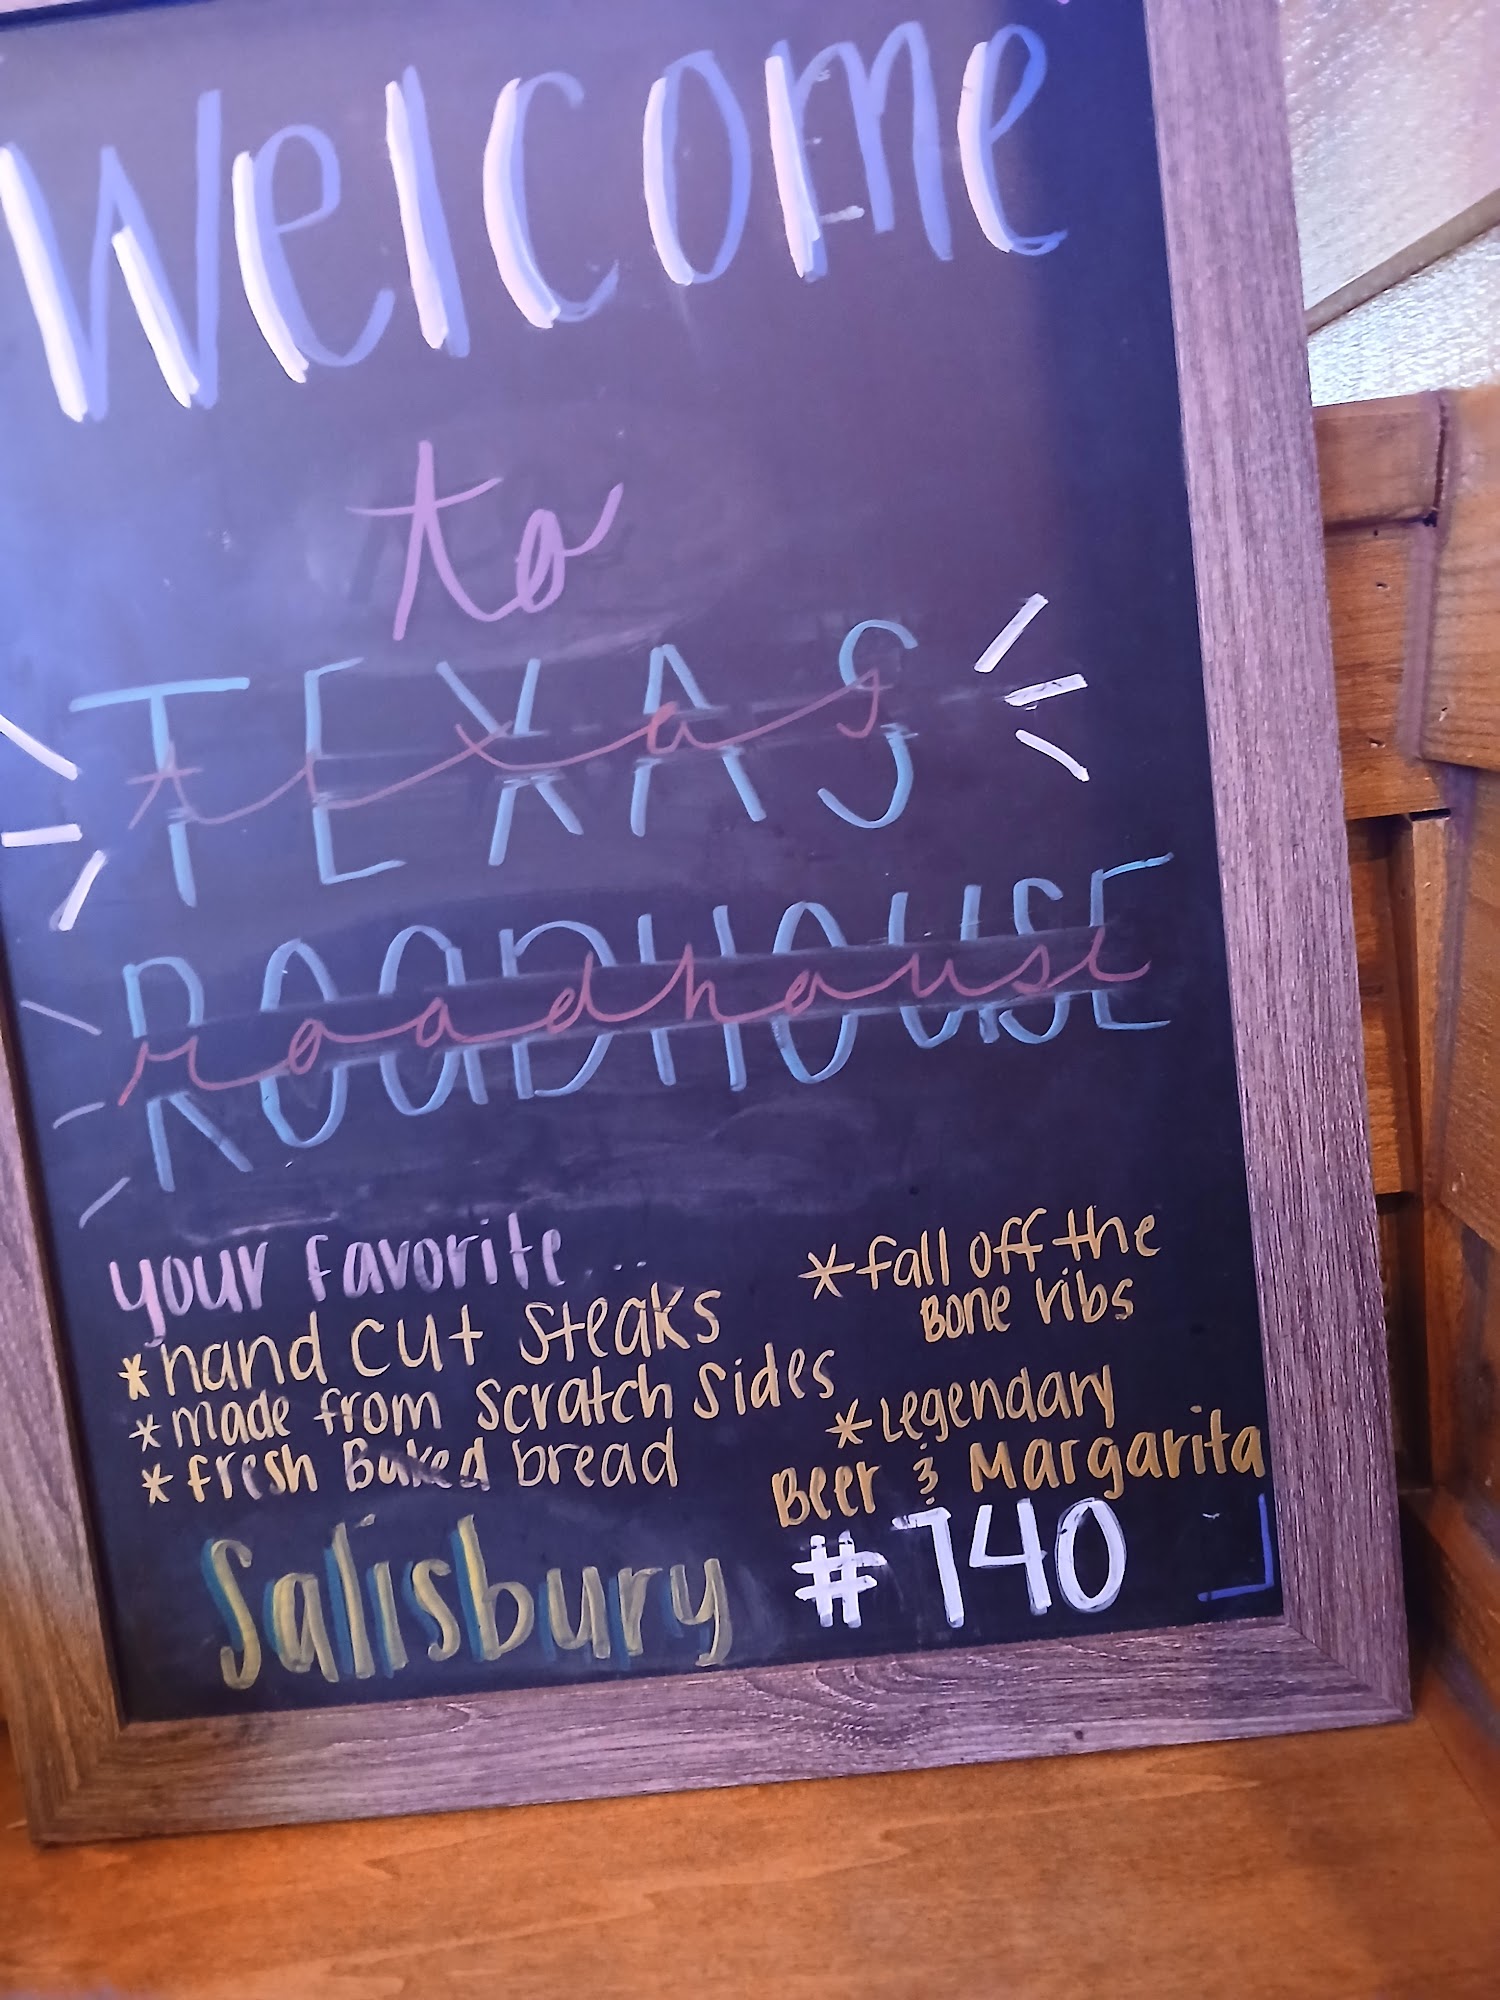 Welcome
to
TEXAS
texas
ROADHOUSE
roadhouse
your favorite...
*hand cut steaks
*made from scratch sides
*fresh Baked bread
*fall off the
Bone ribs
*Legendary
Beer & Margarita
Salisbury #740